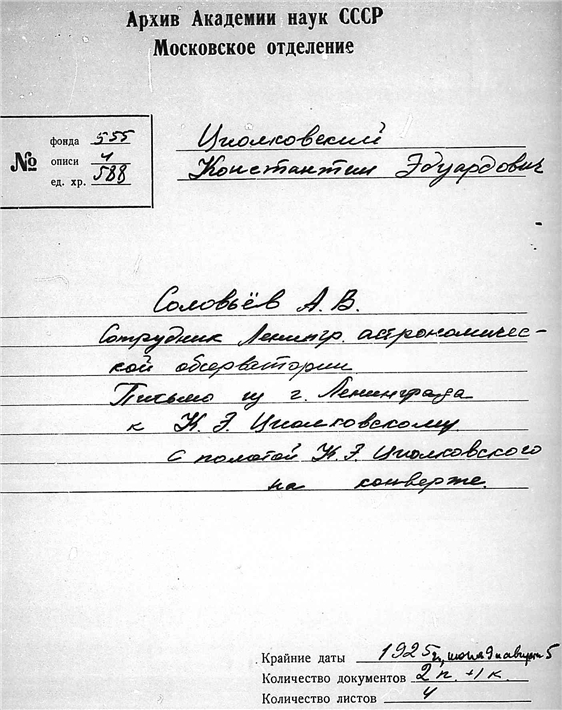 Архив Академии наук СССР
Московское отделение
№
фонда 555
описи 4
ед. хр. 588
Циолковский
Константин Эдуардович
Соловьёв А. В.
Сотрудник Ленингр. астрономичес-
кой обсерватории
Письмо из г. Ленинграда
к К. Э. Циолковскому
с пометой К. Э. Циолковского
на конверте.
Крайние даты 1925 г., июля 9 и август 5
Количество документов 2 п. +1 к.
Количество листов 4